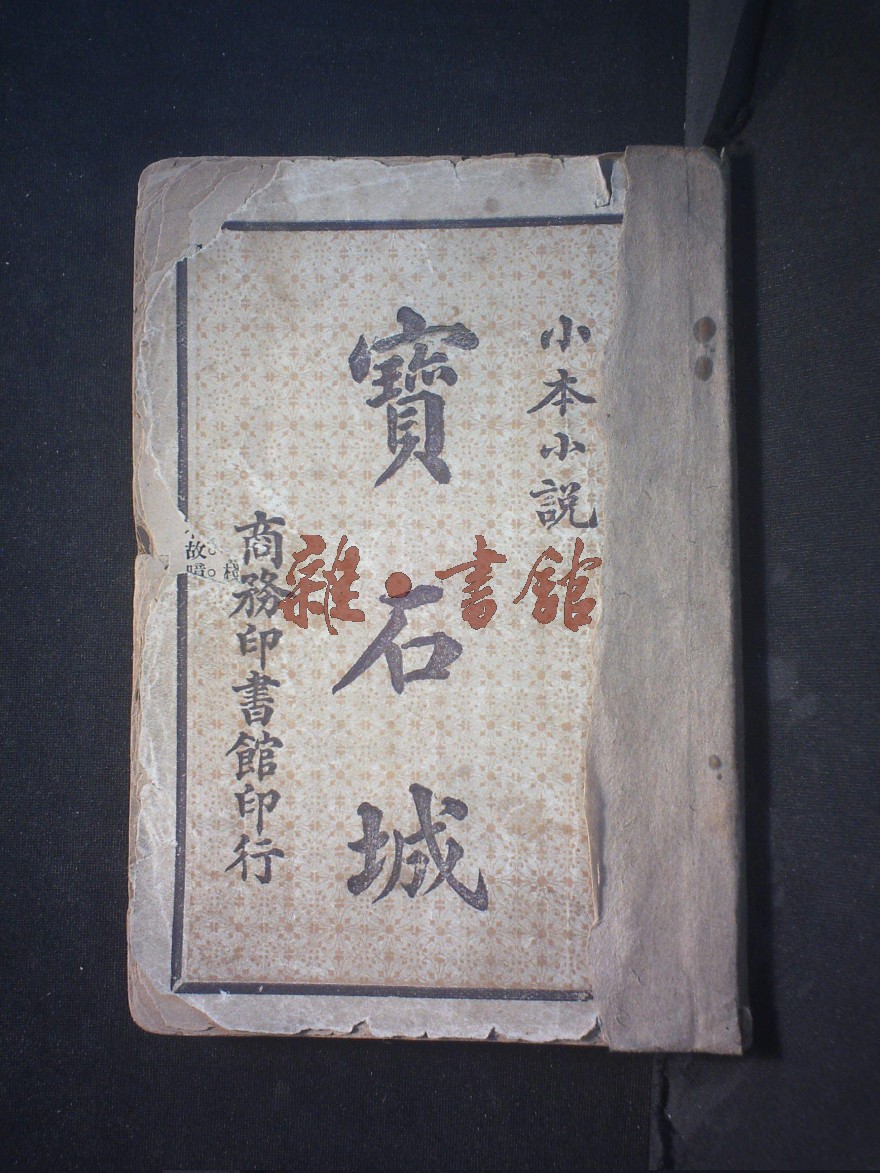 小本小説
寶石城
商務印書館印行
雜·書館
故。